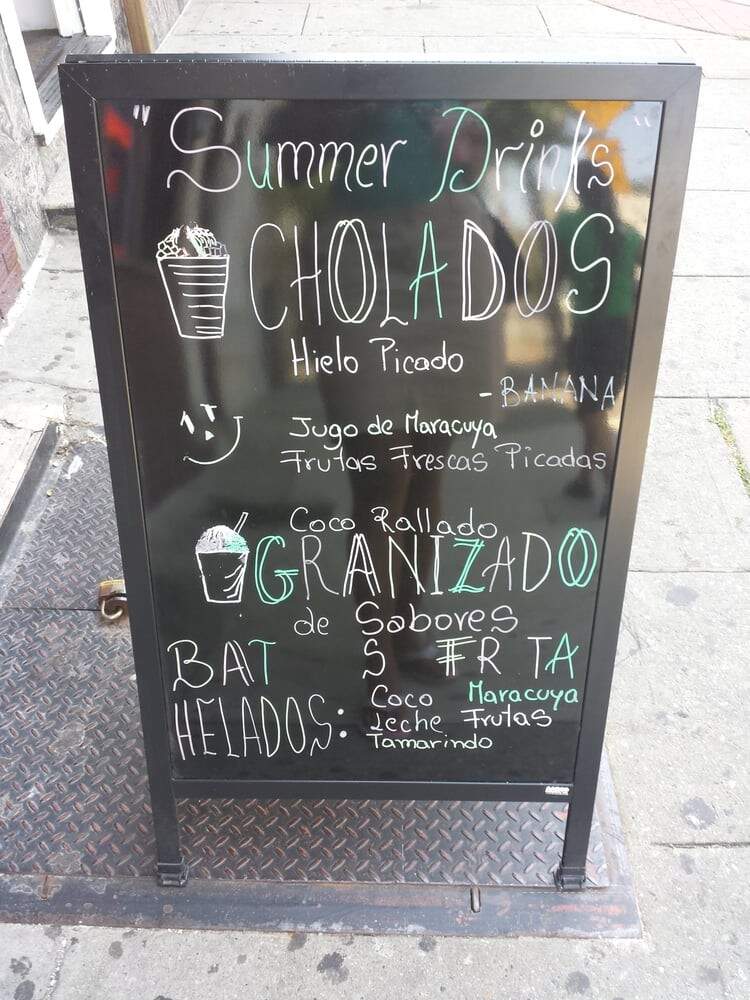 "Summer Drinks"
CHOLADOS
Hielo Picado
- BANANA
Jugo de Maracuya
Frutas Frescas Picadas
Coco Rallado
GRANIZADO
de Sabores
BAT S FR TA
HELADOS: Coco Maracuya
Leche Frutas
Tamarindo